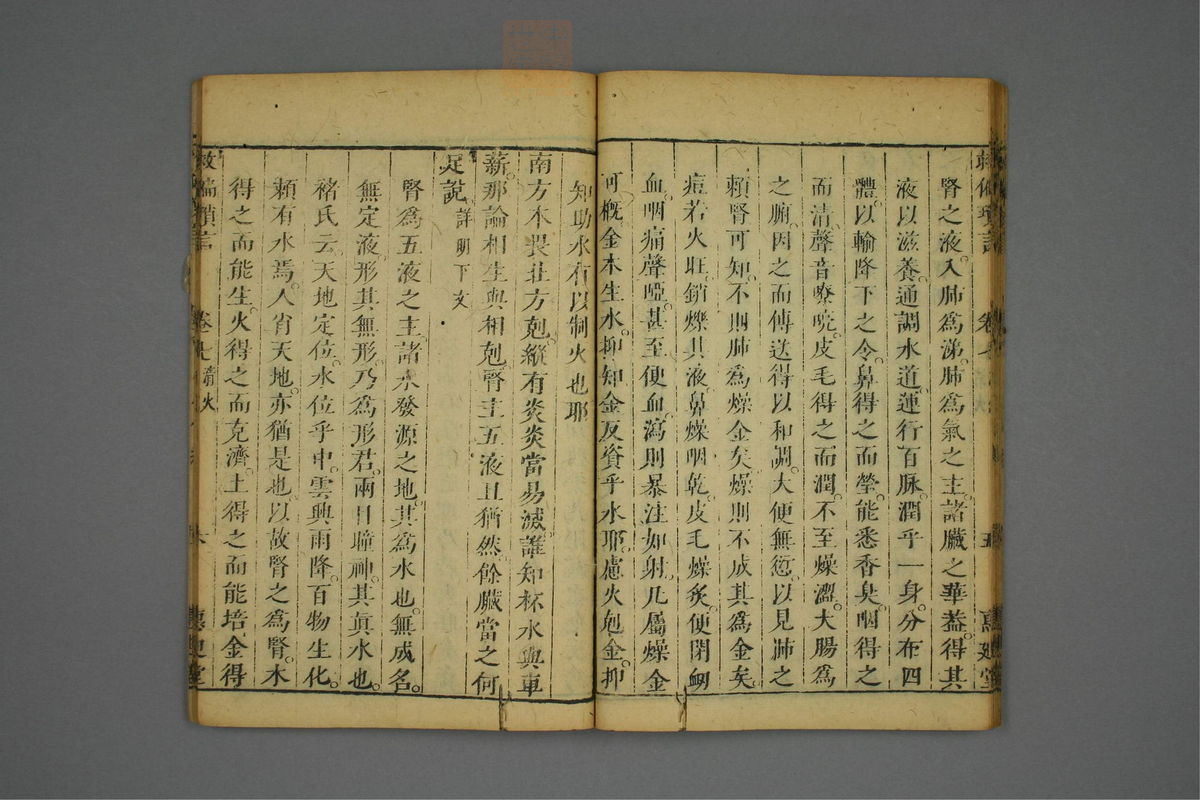 腎之液入肺爲涕肺爲氣之主諸臟之華葢得其
液以滋養通調水道運行百脉潤乎一身分布四
體以輸降下之令鼻得之而瑩能悉香臭咽得之
而清聲音嘹喨皮毛得之而潤不至燥澀大腸爲
之腑因之而傳送得以和調大便無愆以見肺之
賴腎可知不則肺爲燥金矣燥則不成其爲金矣
痘若火旺銷爍其液鼻燥咽乾皮毛燥炙便閉衂
血咽痛聲啞甚至便血瀉則暴注如射凡屬燥金
可槪金本生水抑知金反資乎水耶慮火剋金抑
知助水有以制火也耶
南方本畏北方剋縱有炎炎當易滅誰知杯水與車
薪那論相生與相剋腎主五液且猶然餘臟當之何
足說詳明下文
腎爲五液之主諸水發源之地其爲水也無成名
無定液形其無形乃爲形君兩目瞳神其眞水也
褚氏云天地定位水位乎中雲興雨降百物生化
賴有水焉人肖天地亦猶是也以故腎之爲腎木
得之而能生火得之而克濟土得之而能培金得
救偏瑣言
卷七
六
惠迪堂